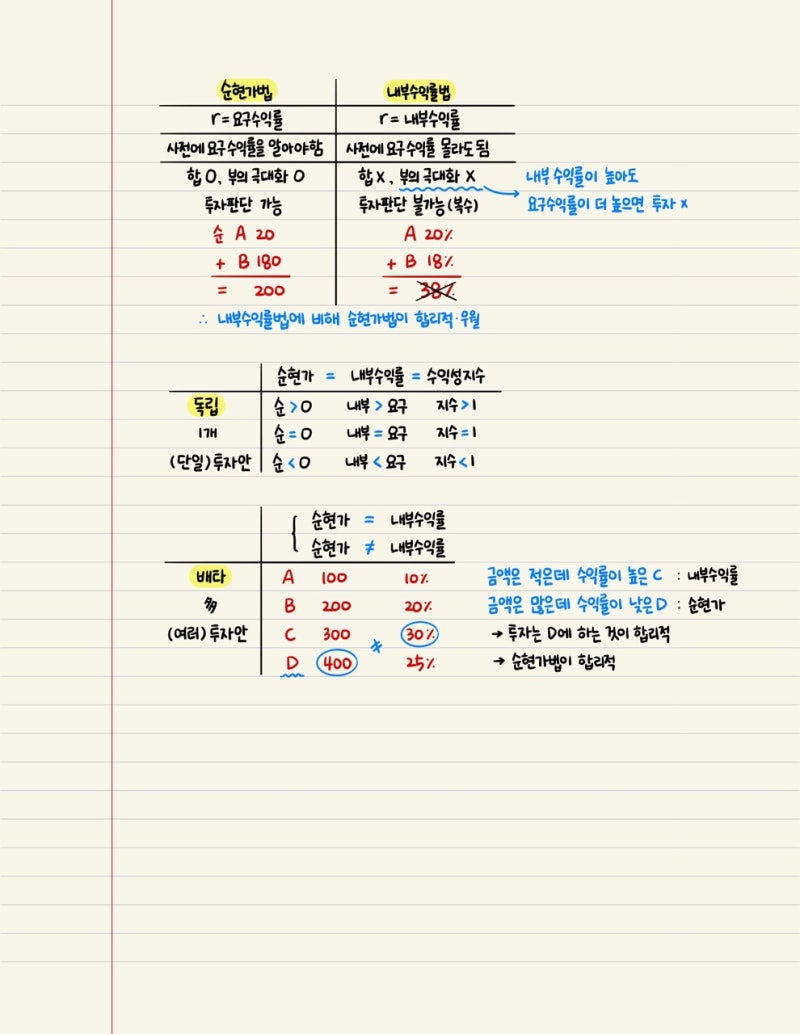 순현가법 내부수익률법
r = 요구수익률 r = 내부수익률
사전에 요구수익률을 알아야함 사전에 요구수익률 몰라도 됨
합 O, 부의 극대화 O 합 X, 부의 극대화 X 내부 수익률이 높아도
투자판단 가능 투자판단 불가능(복수) → 요구수익률이 더 높으면 투자 X
순 A 20 A 20%
+ B 180 + B 18%
= 200 = 38%
∴ 내부수익률법에 비해 순현가법이 합리적·우월
순현가 = 내부수익률 = 수익성지수
독립 순 > 0 내부 > 요구 지수 > 1
1개 순 = 0 내부 = 요구 지수 = 1
(단일)투자안 순 < 0 내부 < 요구 지수 < 1
순현가 = 내부수익률
순현가 ≠ 내부수익률
배타 A 100 10% 금액은 적은데 수익률이 높은 C : 내부수익률
多 B 200 20% 금액은 많은데 수익률이 낮은 D : 순현가
(여러)투자안 C 300 ≠ 30% → 투자는 D에 하는 것이 합리적
D 400 25% → 순현가법이 합리적